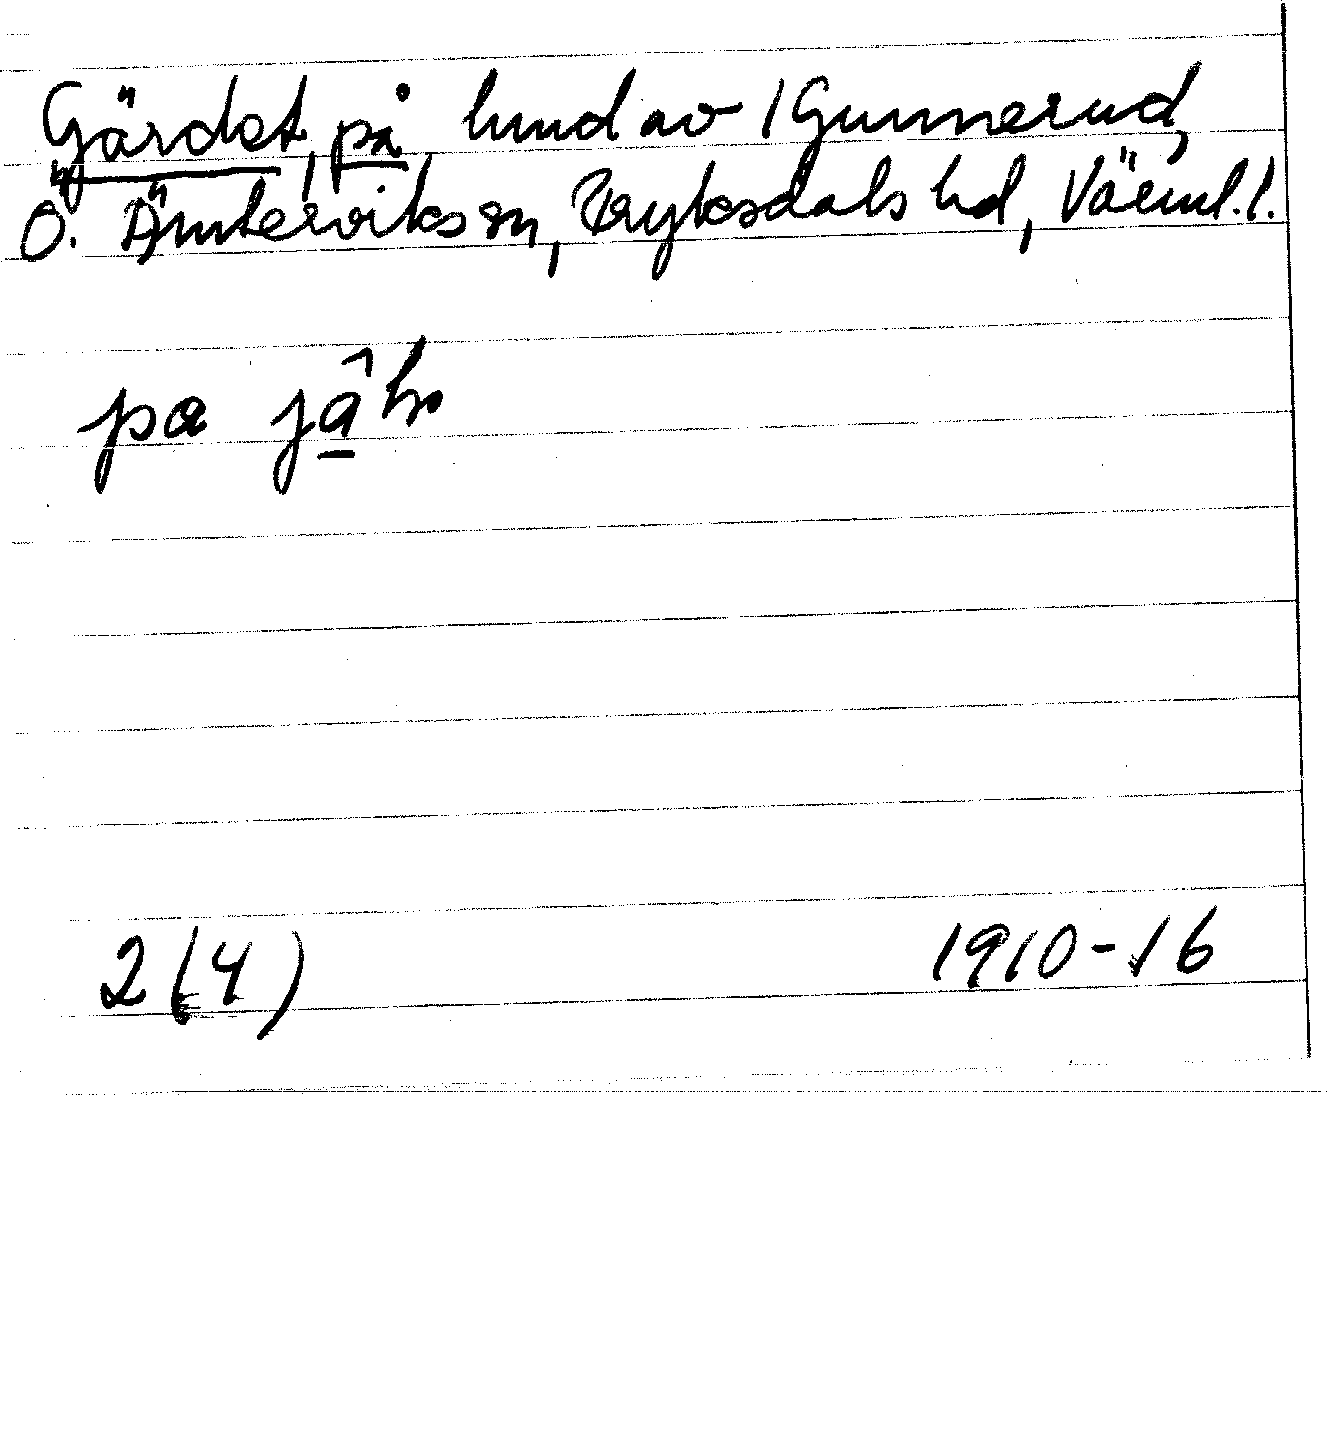 Gärdet, på, hmd av 1 Gunnerud,
Ö. Ämterviks sn, Fryksdals hd, Värml. l.
pa jâ̱
2(4) 1910-16